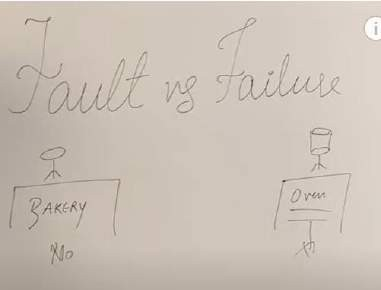 Fault vs Failure
BAKERY
Oven
No